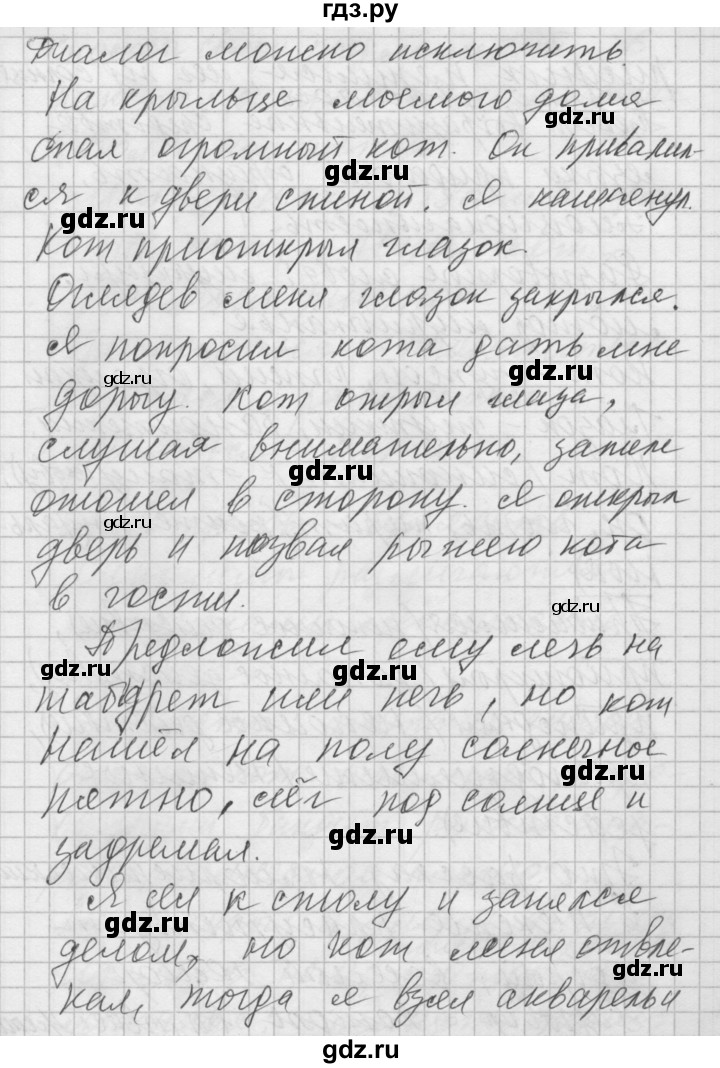 гдз.ру
Диалог можно исключить.
На крыльце моемого дома
gdz.ru
спал огромный кот. Он привалил-
gdz.ru
ся к двери спиной. Я кашлянул.
gdz.ru
gdz.ru
Кот приоткрыл глазок.
Оглядев меня глазок закрылся.
gdz.ru
Я попросил кота дать мне
gdz.ru
gdz.ru
дорогу. Кот открыл глаза,
слушая внимательно, затем
gdz.ru
отошел в сторону. Я открыл
gdz.ru
дверь и позвал рыжего кота
в гости.
gdz.ru
Предложил ему лечь на
gdz.ru
gdz.ru
табурет или печь, но кот
нашёл на полу солнечное
gdz.ru
пятно, лёг под солнце и
gdz.ru
задремал.
Я сел к столу и занялся
gdz.ru
делом, но кот меня отвле-
gdz.ru
кал, тогда я взял акварель и
gdz.ru
gdz.ru